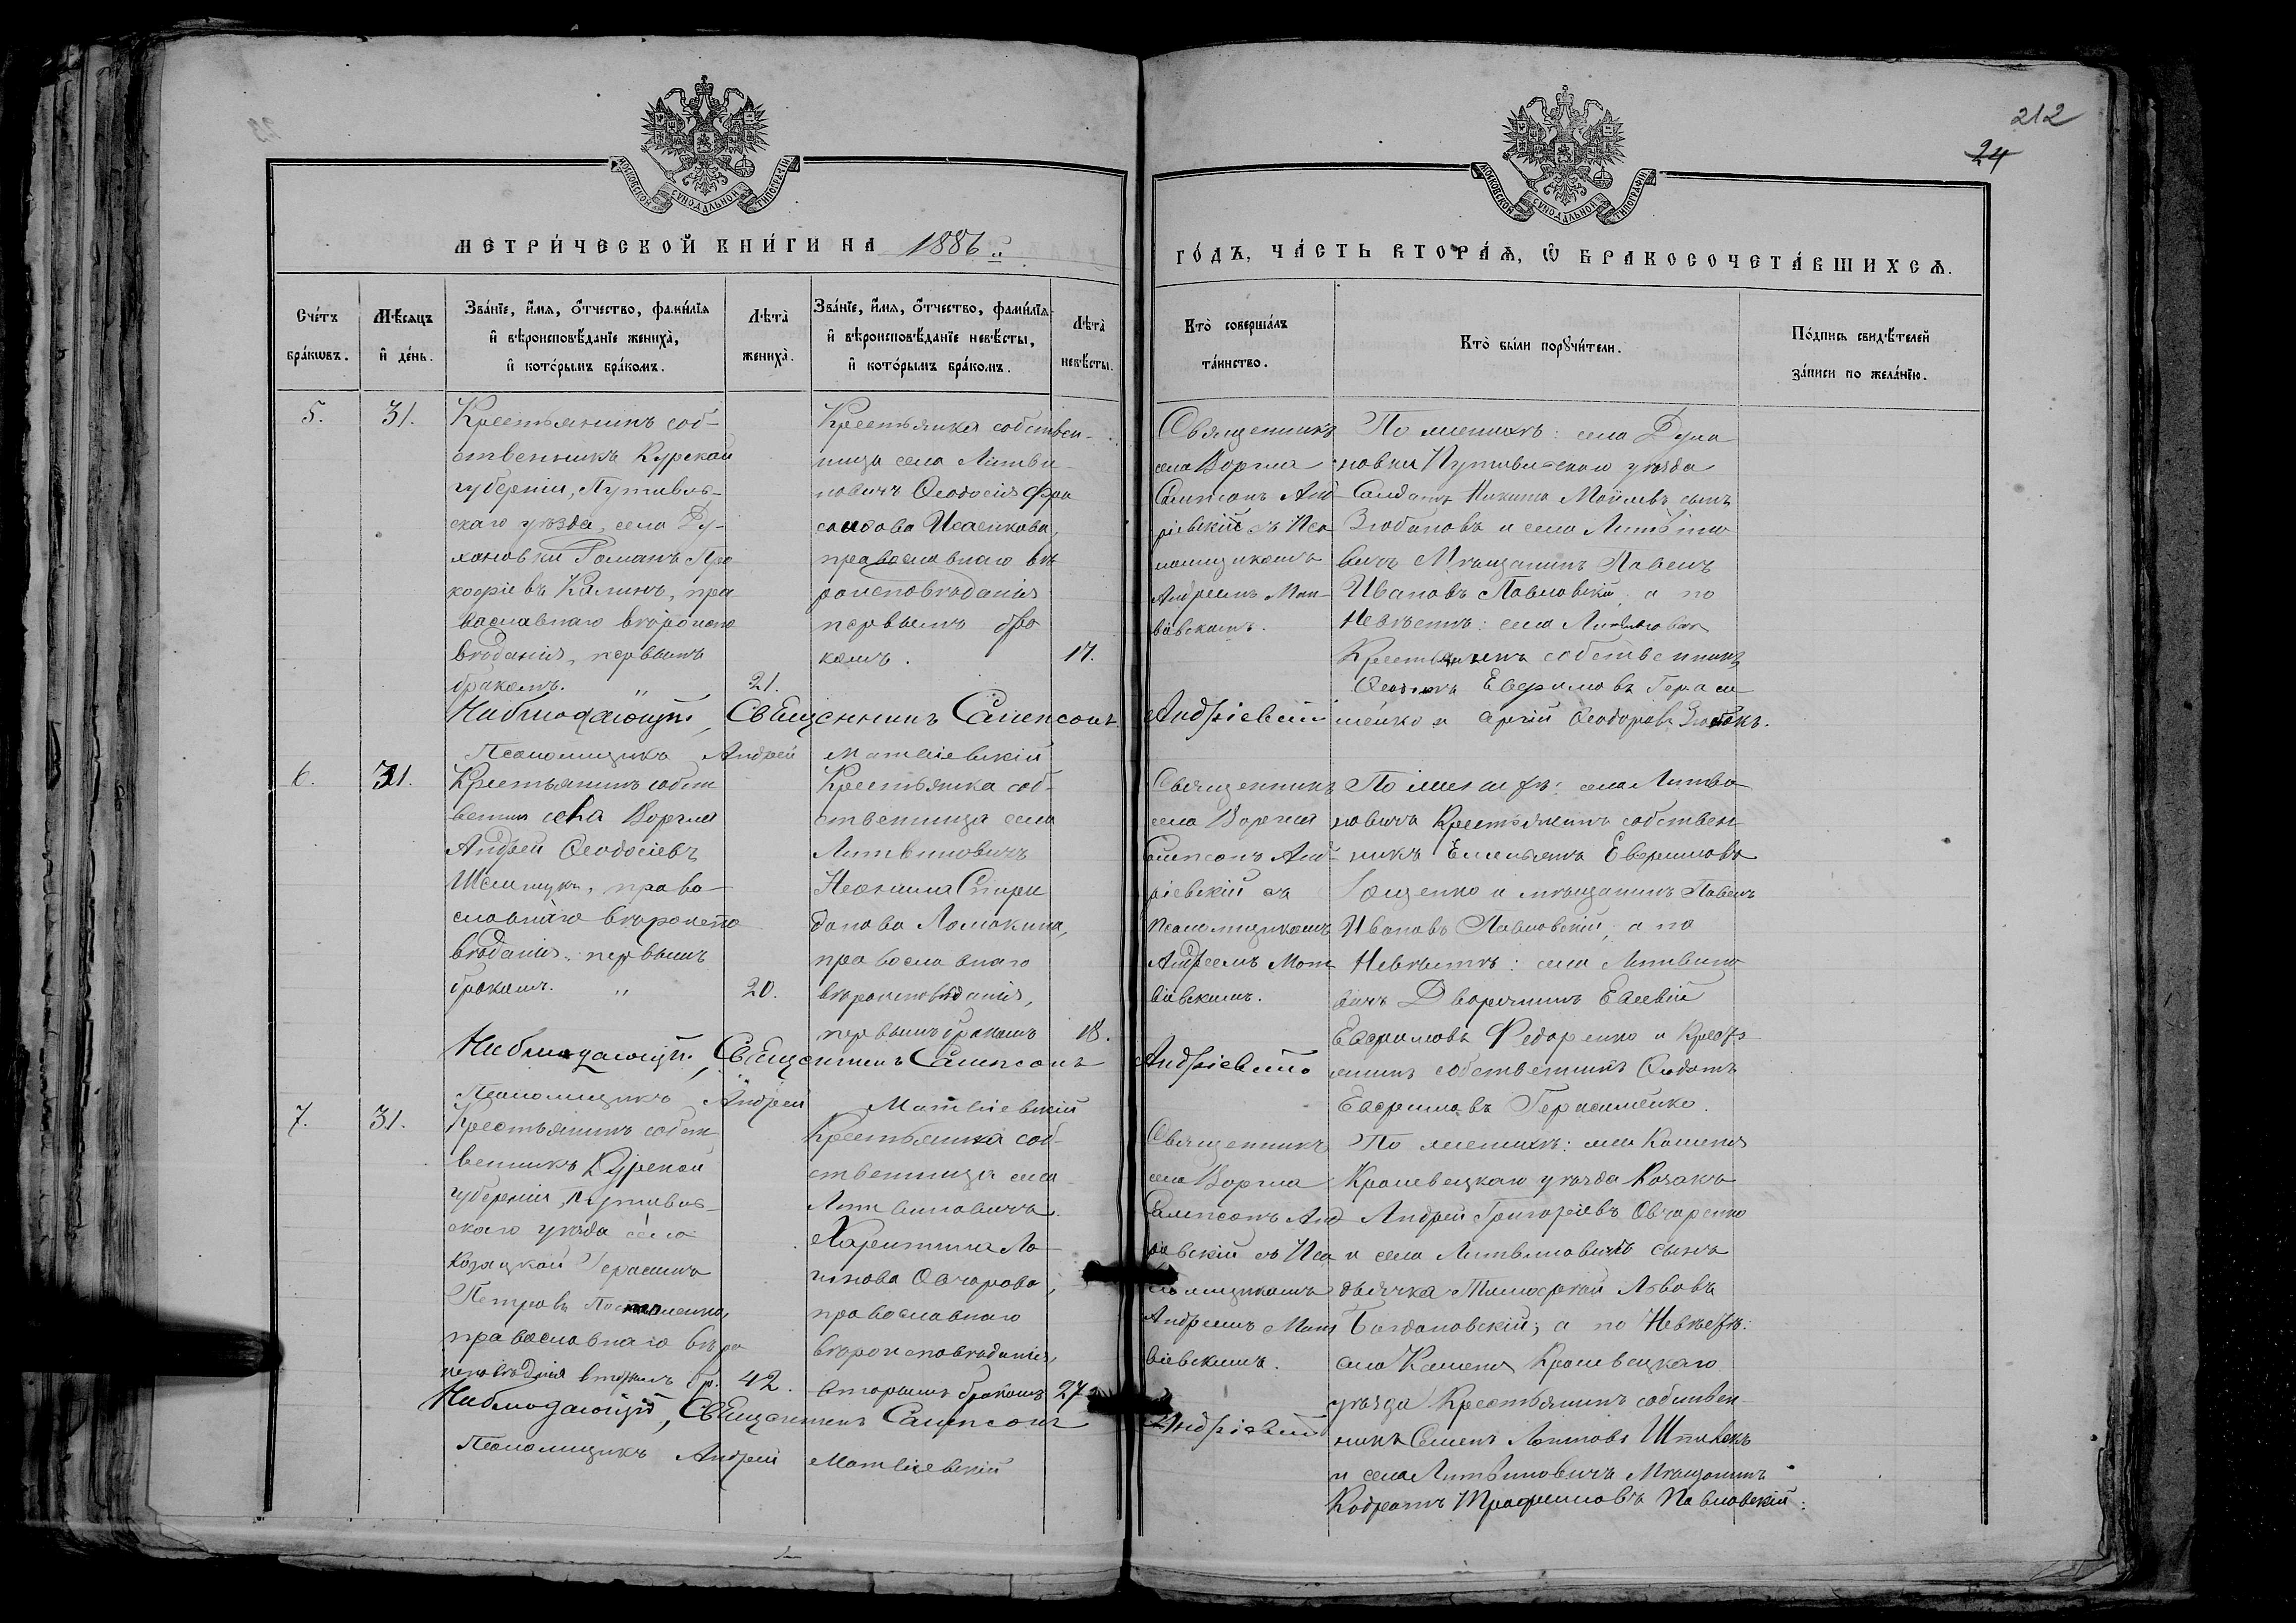 212
24
МОСКОВСКОЙ СѴНОДАЛЬНОЙ ТИПОГРАФІИ
МОСКОВСКОЙ СѴНОДАЛЬНОЙ ТИПОГРАФІИ
МЕТРИ́ЧЕСКОЙ КНИ́ГИ НА 1886й
ГО́ДЪ, ЧА́СТЬ ВТОРА́Ѧ, Ѽ БРАКОСОЧЕТА́ВШИХСѦ.
Сче́тъ бра́кѡвъ.
Мѣ́сѧцъ и҆ де́нь.
Зва́нїе, и҆́мѧ, ѻ҆́тчество, фами́лїѧ
и҆ вѣроисповѣ́данїе жениха̀,
и҆ кото́рымъ бра́комъ.
Лѣта̀ жениха̀.
Зва́нїе, и҆́мѧ, ѻ҆́тчество, фами́лїѧ
и҆ вѣроисповѣ́данїе невѣ́сты,
и҆ кото́рымъ бра́комъ.
Лѣта̀ невѣ́сты.
Кто̀ соверша́лъ
та́инство.
Кто̀ бы́ли порꙋчи́тели.
По́дпись свидѣ́телей
за́писи по жела́нїю.
5.
31.
Крестьянинъ соб-
ственникъ Курской
губерніи, Путивль-
скаго уѣзда, села Ру-
хановки Романъ Про
кофіевъ Калинъ, пра
вославнаго вѣроиспо
вѣданія, первымъ
бракомъ. „
21.
Крестьянка собствен-
ница села Литви
новичъ Ѳеодосія
Исаенкова,
православнаго вѣ
роисповѣданія
первымъ бра
комъ.
17.
Священникъ
села Воргла
Сампсонъ Анд-
ріевскій съ Пса
ломщикомъ
Андреемъ Мат-
віевскимъ.
По женихѣ: села
новки Путивльскаго уѣзда
Солдатъ Никита сынъ
и села Литвино
вичъ Мѣщанинъ Павелъ
Ивановъ Павловскій, а по
Невѣстѣ: села Литвиновичъ
Крестьянинъ собственникъ
Ѳеодотъ Евфимовъ Гераси
менко и Ѳеодоровъ
Наблюдающій, Священникъ Сампсонъ Андріевскій
Псаломщикъ Андрей Матвіевскій
6.
31.
Крестьянинъ собст
венникъ села Воргла
Андрей Ѳеодосіевъ
право-
славнаго вѣроиспо
вѣданія, первымъ
бракомъ. „
20.
Крестьянка соб-
ственница села
Литвиновичъ
Неонила Спири
донова Ломакина,
православнаго
вѣроисповѣданія,
первымъ бракомъ
18.
Священникъ
села Воргла
Сампсонъ Анд-
ріевскій съ
Псаломщикомъ
Андреемъ Мат
віевскимъ.
По женихѣ: села Литви
новичъ Крестьянинъ собствен-
никъ Емельянъ Евфимовъ
Ющенко и мѣщанинъ Павелъ
Ивановъ Павловскій, а по
Невѣстѣ: села Литвино
вичъ Дворянинъ Евсевій
Евфимовъ Федоренко и Крест
янинъ собственникъ Ѳеодотъ
Евфимовъ Герасименко.
Наблюдающій, Священникъ Сампсонъ Андріевскій
Псаломщикъ Андрей Матвіевскій
7.
31.
Крестьянинъ собст
венникъ Курской
губерніи, Путивль-
скаго уѣзда села
Козацкой Герасимъ
Петровъ
православнаго вѣро
исповѣданія вторымъ бр.
42.
Крестьянка соб-
ственница села
Литвиновичъ
Харитина Ло-
гинова Овчарова,
православнаго
вѣроисповѣданія,
вторымъ бракомъ
27
Священникъ
села Воргла
Сампсонъ Анд
ріевскій съ Пса
ломщикомъ
Андреемъ Мат
віевскимъ.
По женихѣ: села Каменя
Кролевецкаго уѣзда Козакъ
Андрей Григоріевъ Овчаренко
и села Литвиновичъ сынъ
дьячка Тимофѣй Львовъ
Богдановскій; а по Невѣстѣ:
села Каменя Кролевецкаго
уѣзда Крестьянинъ собствен-
никъ Семенъ Логиновъ
и села Литвиновичъ Мѣщанинъ
Кодратъ Трофимовъ Павловскій.
Наблюдающій, Священникъ Сампсонъ Андріевскій
Псаломщикъ Андрей Матвіевскій